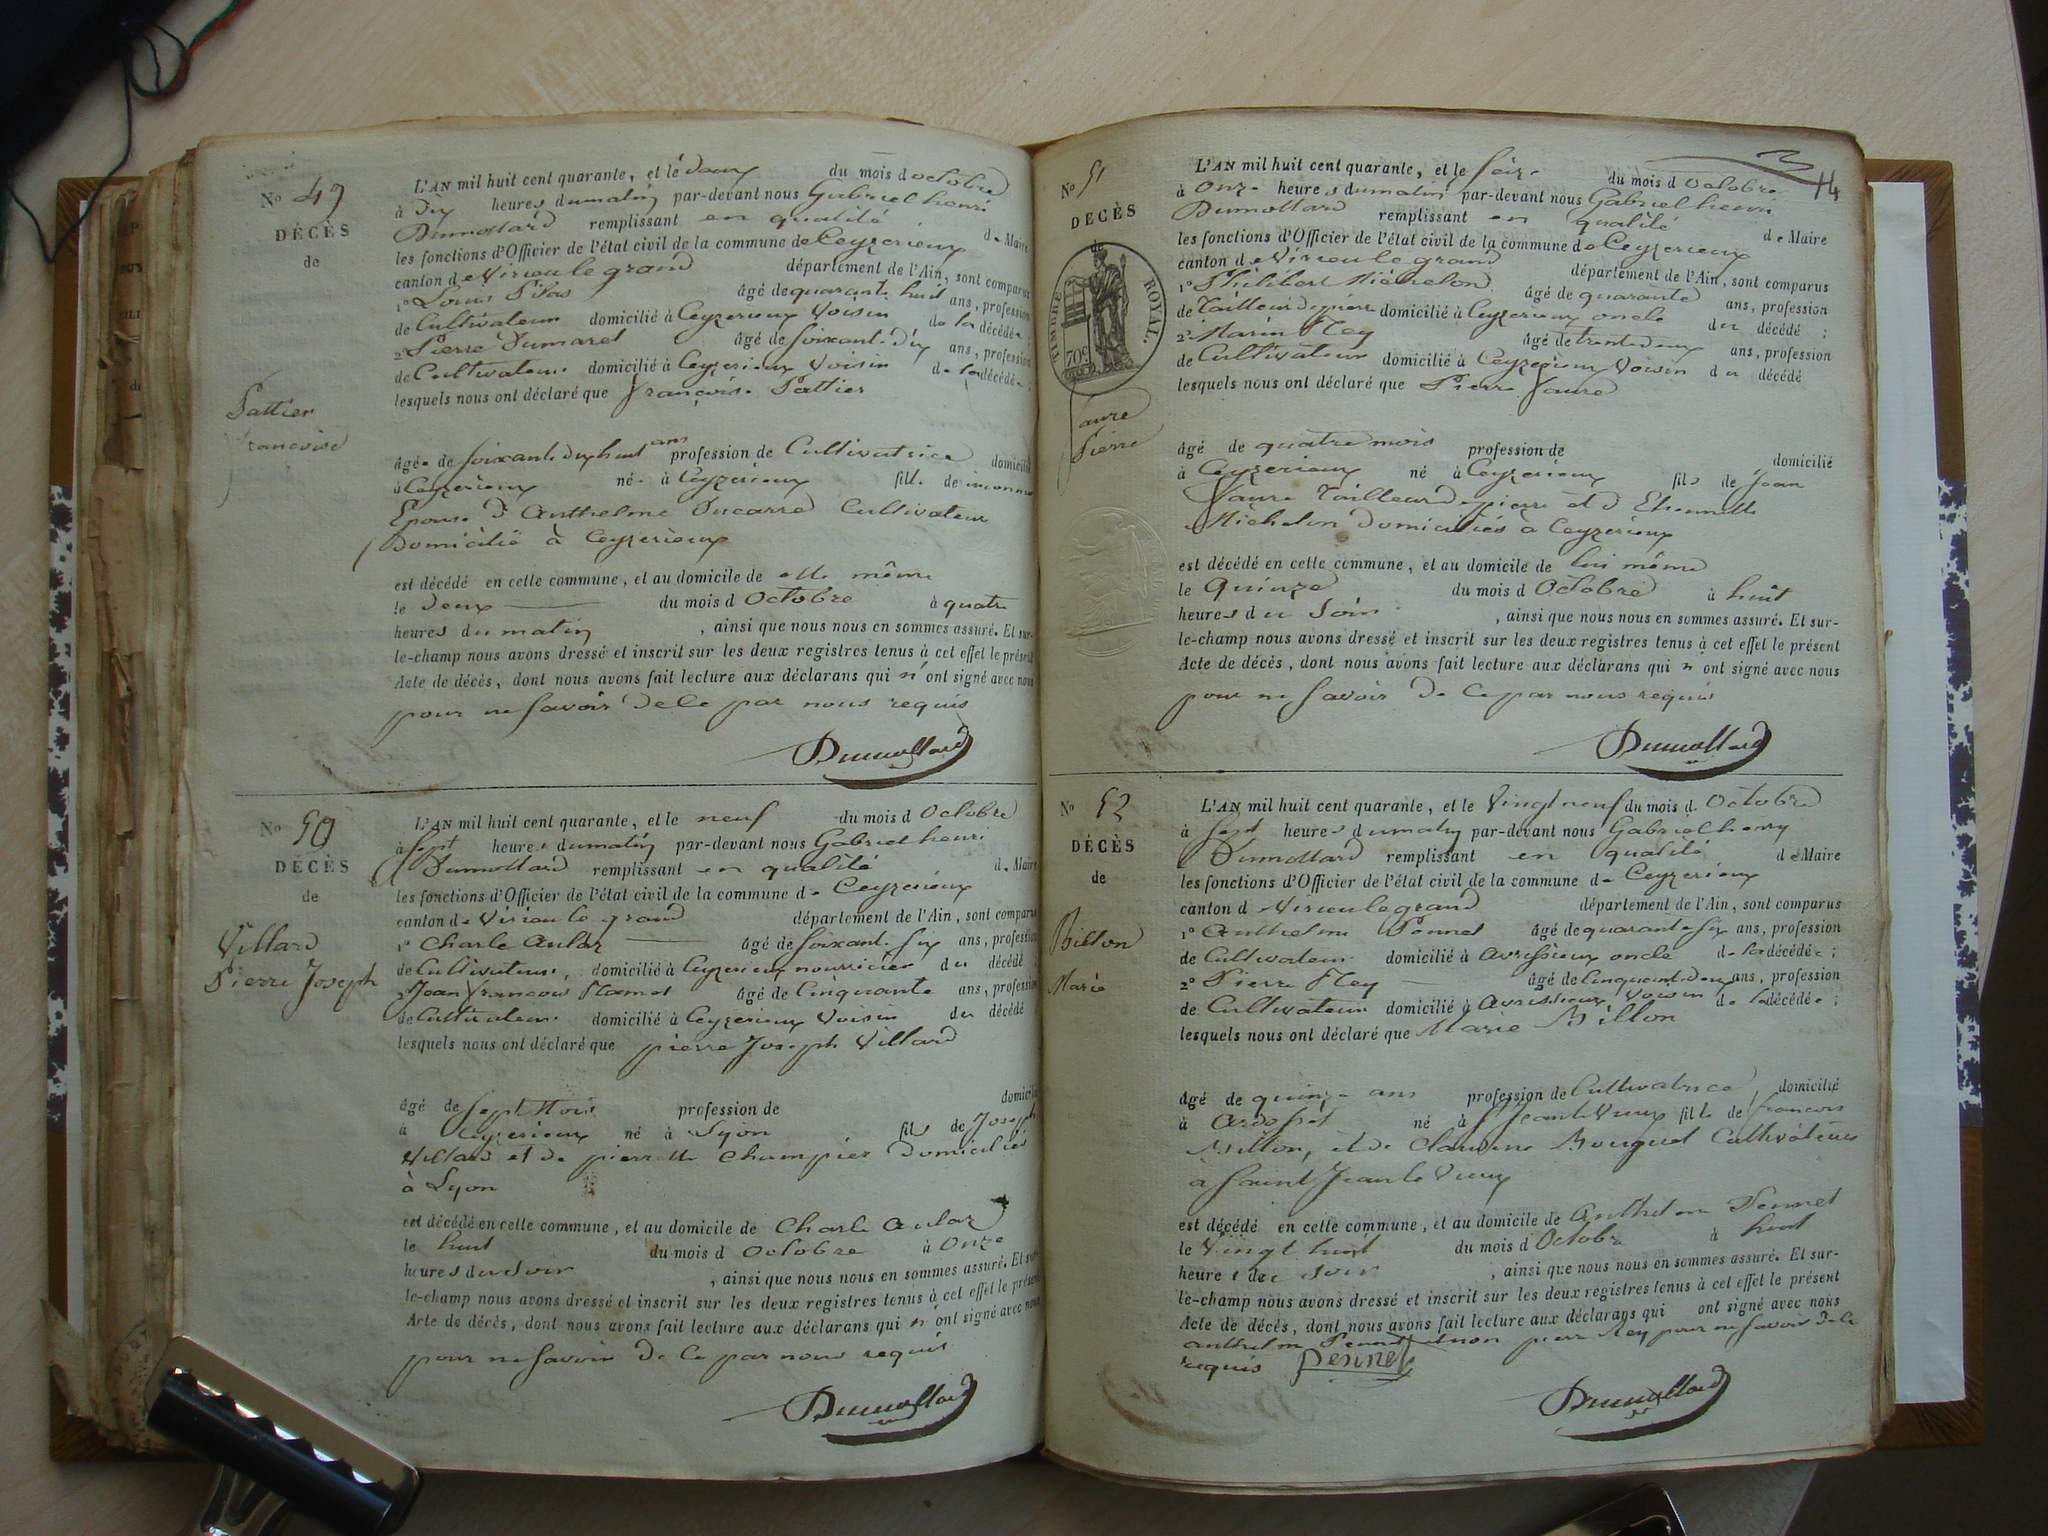 No 49
DÉCÈS
de
Pattier
françoise
L'AN mil huit cent quarante, et le deux du mois d octobre
à dix heures du matin par-devant nous Gabriel henri
Dumollard remplissant en qualité de Maire
les fonctions d'Officier de l'état civil de la commune de Ceyzerieux
canton de Virieu le grand département de l'Ain, sont comparus
1o Louis Pilas âgé de quarante huit ans, profession
de Cultivateur domicilié à Ceyzerieux Voisin de la décédée ;
2o Pierre Dumaret âgé de soixante dix ans, profession
de Cultivateur domicilié à Ceyzerieux Voisin de la décédée ;
lesquels nous ont déclaré que françoise Pattier
âgée de soixante dix huit ans profession de Cultivatrice domicilié
à Ceyzerieux née à Ceyzerieux fille de inconnu
Epouse d'Anthelme Ducarre Cultivateur
Domicilié à Ceyzerieux
est décédé en cette commune, et au domicile de elle même
le deux du mois d Octobre à quatre
heures du matin , ainsi que nous nous en sommes assuré. Et sur-
le-champ nous avons dressé et inscrit sur les deux registres tenus à cet effet le présent
Acte de décès, dont nous avons fait lecture aux déclarans qui n' ont signé avec nous
pour ne savoir de ce par nous requis
Dumollard
No 50
DÉCÈS
de
Villard
Pierre Joseph
L'AN mil huit cent quarante, et le neuf du mois d Octobre
à sept heures du matin par-devant nous Gabriel henri
Dumollard remplissant en qualité de Maire
les fonctions d'Officier de l'état civil de la commune de Ceyzerieux
canton de Virieu le grand département de l'Ain, sont comparus
1o Charle Aular âgé de soixante six ans, profession
de Cultivateur, domicilié à Ceyzerieux nourricier du décédé
2o Jean François Mamet âgé de Cinquante ans, profession
de Cultivateur domicilié à Ceyzerieux Voisin du décédé
lesquels nous ont déclaré que pierre Joseph Villard
âgé de sept Mois profession de domicilié
à Ceyzerieux né à Lyon fils de Joseph
Villard et de pierrette Champier Domiciliés
à Lyon
est décédé en cette commune, et au domicile de Charle Aular
le huit du mois d Octobre à Onze
heures du soir , ainsi que nous nous en sommes assuré. Et sur-
le-champ nous avons dressé et inscrit sur les deux registres tenus à cet effet le présent
Acte de décès, dont nous avons fait lecture aux déclarans qui n' ont signé avec nous
pour ne savoir de ce par nous requis
Dumollard
14
No 51
DÉCÈS
de
TIMBRE ROYAL.
70c
faure
Pierre
L'AN mil huit cent quarante, et le seize du mois d Octobre
à Onze heures du matin par-devant nous Gabriel henri
Dumollard remplissant en qualité de Maire
les fonctions d'Officier de l'état civil de la commune de Ceyzerieux
canton de Virieu le grand département de l'Ain, sont comparus
1o Philibert Michelon âgé de quarante ans, profession
de Tailleur de pierre domicilié à Ceyzerieux oncle du décédé ;
2o Marin Rey âgé de trente deux ans, profession
de Cultivateur domicilié à Ceyzerieux Voisin du décédé
lesquels nous ont déclaré que Pierre faure
âgé de quatre mois profession de domicilié
à Ceyzerieux né à Ceyzerieux fils de Jean
faure Tailleur de pierre et d'Etiennette
Michelon Domiciliés à Ceyzerieux
est décédé en cette commune, et au domicile de lui même
le Quinze du mois d Octobre à huit
heures du Soir , ainsi que nous nous en sommes assuré. Et sur-
le-champ nous avons dressé et inscrit sur les deux registres tenus à cet effet le présent
Acte de décès, dont nous avons fait lecture aux déclarans qui n' ont signé avec nous
pour ne savoir de ce par nous requis
Dumollard
No 52
DÉCÈS
de
Billon
Marie
L'AN mil huit cent quarante, et le Vingt neuf du mois d Octobre
à sept heures du matin par-devant nous Gabriel henry
Dumollard remplissant en qualité de Maire
les fonctions d'Officier de l'état civil de la commune de Ceyzerieux
canton d Virieu le grand département de l'Ain, sont comparus
1o Anthelme Pennet âgé de quarante six ans, profession
de Cultivateur domicilié à Avrissieux oncle de la décédée ;
2o Pierre Rey âgé de Cinquante deux ans, profession
de Cultivateur domicilié à Avrissieux, Voisin de la décédée ;
lesquels nous ont déclaré que Marie Billon
âgé de quinze ans profession de Cultivatrice domicilié
à Ardosset né à St Jean le Vieux fille de francois
Billon, et de Claudine Bouquet Cultivateurs
à Saint Jean le Vieux
est décédé en cette commune, et au domicile de Anthelme Pennet
le Vingt huit du mois d Octobre à huit
heures du soir , ainsi que nous nous en sommes assuré. Et sur-
le-champ nous avons dressé et inscrit sur les deux registres tenus à cet effet le présent
Acte de décès, dont nous avons fait lecture aux déclarans qui ont signé avec nous
anthelme Pennet et non pierre Rey pour ne savoir de ce
requis Pennet
Dumollard